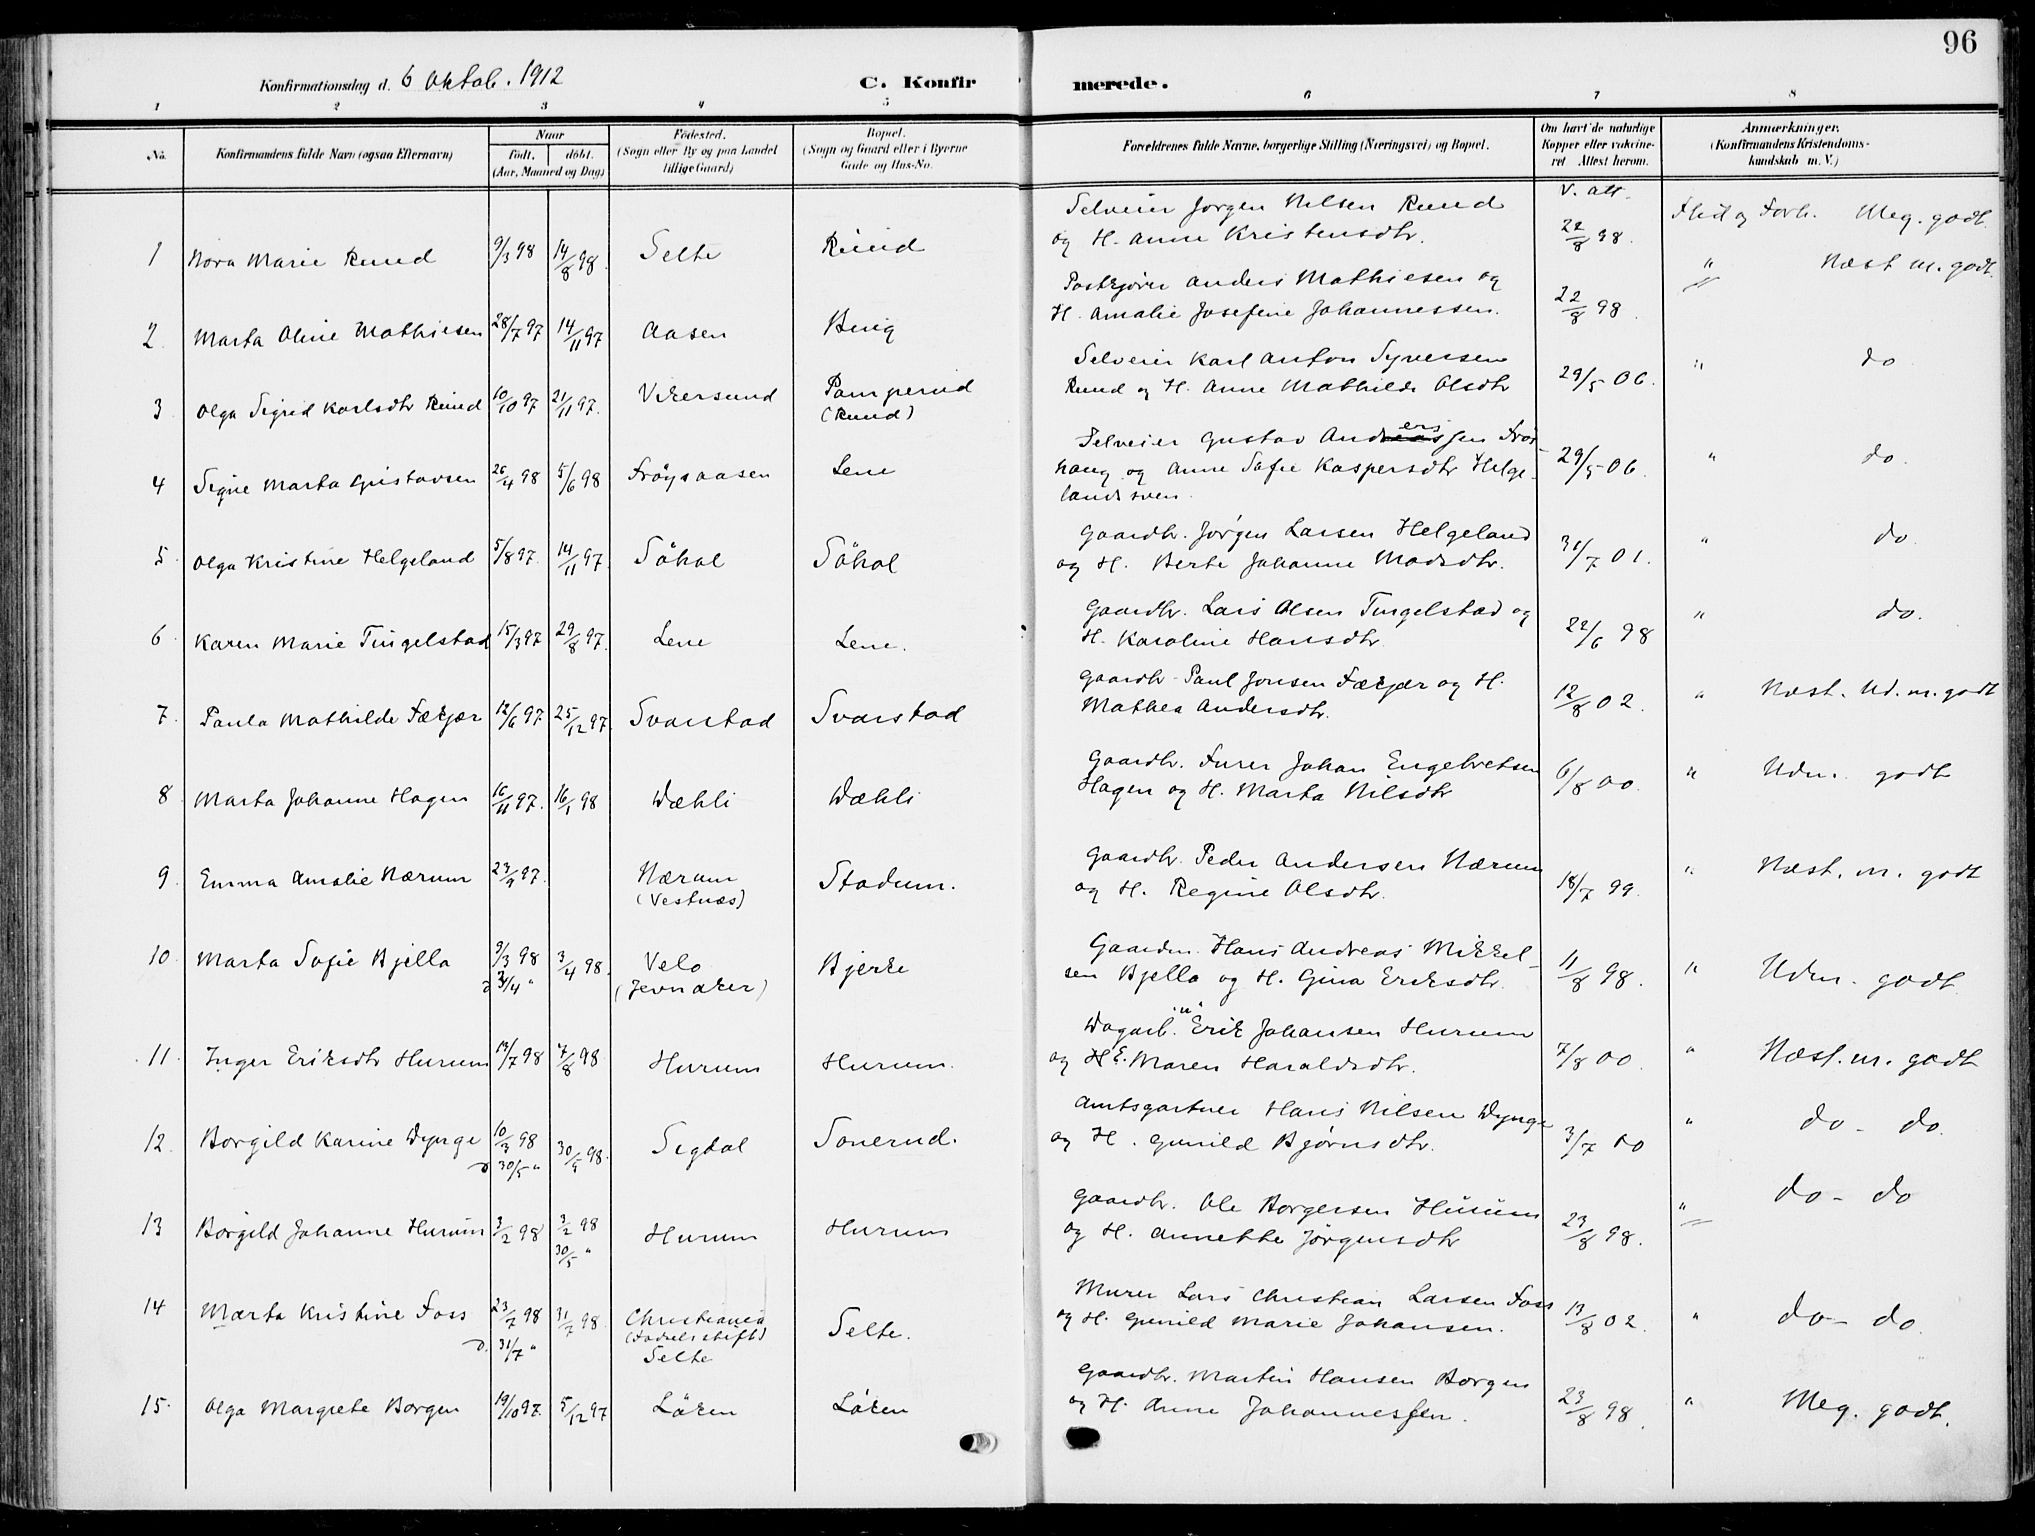 96
Konfirmationsdag d. 6 Oktob. 1912
C. Konfirmerede.
1 2 3 4 5 6 7 8
No.
Konfirmandens fulde Navn (ogsaa Efternavn)
Naar
født, døbt.
(Aar, Maaned og Dag)
Fødested.
(Sogn eller By og paa Landet
tillige Gaard)
Bopæl.
(Sogn og Gaard eller i Byerne
Gade og Hus-No.
Forældrenes fulde Navne, borgerlige Stilling (Næringsvei) og Bopæl.
Om havt de naturlige
Kopper eller vakcine-
ret Attest herom.
Anmærkninger.
(Konfirmandens Kristendoms-
kundskab m. V.)
V. att.
Selveier Jørgen Nilsen Ruud
og H. Anne Kristensdtr.
1 Nora Marie Ruud 9/3 98 14/8 98. Selte Ruud 22/8 98. Flid og Forh. Meg. godt
Postkjører Anders Mathiesen og
H. Amalie Josefine Johannessen.
2. Marta Oline Mathiesen 28/7 97 14/11 97 Aasen Berig 22/8 98. " Næst m. godt.
Selveier Karl Anton Syversen
Ruud og H. Anne Mathilde Olsdtr
3 Olga Sigrid Karlsdtr Ruud 10/10 97 21/11 97. Vikersund Pamperud
(Ruud) 29/5 06. " do
Selveier Gustav Anderssen Frøs-
haug og Anne Sofie Kaspersdtr Helge-
landsven.
4 Signe Marta Gustavsen 26/4 98 5/6 98 Frøysaasen Lene 29/5 06. " do.
Gaardbr. Jørgen Larsen Helgeland
og H. Berte Johanne Madsdtr.
5. Olga Kristine Helgeland 5/8 97. 14/11 97. Søhol Søhol 31/7 01. " do.
Gaardbr. Lars Olsen Tingelstad og
H. Karoline Hansdtr.
6 Karen Marie Tingelstad 15/3 97 29/8 97. Lene Lene. 22/6 98 " do.
Gaardbr. Paul Jonsen Fækjær og H.
Mathea Andersdtr.
7. Paula Mathilde Fækjær 12/6 97. 25/12 97. Svarstad Svarstad 12/8 02. " Næst. Ud. m. godt
Gaardbr. Furer Johan Engebretsen
Hagen og H. Marta Nilsdtr
8 Marta Johanne Hagen 16/11 97. 16/1 98 Wæhli Wæhli 6/8 00. " Udm. godt
Gaardbr. Peder Andersen Nærum
og H. Regine Olsdtr.
9. Emma Amalie Nærum 23/9 97. Nærum
(Vestnæs) Stadum. 18/7 99. " Næst. m. godt
Gaardm. Hans Andreas Mikkel-
sen Bjella og H. Gina Eriksdtr.
10. Marta Sofie Bjella 9/3 98 3/4 98. Velo
d 3/4 " (Jevnaker) Bjerke 11/8 98. " Udm. godt
Dagarb. "u" Erik Johansen Hurum
og H E. Maren Haraldsdtr.
11. Inger Eriksdtr Hurum 13/7 98 7/8 98 Hurum Hurum. 7/8 00. " Næst. m. godt
Amtsgartner Hans Nilsen Dynge
og H. Gunild Bjørnsdtr.
12. Borgild Karine Dynge 10/3 98 30/5 98. Sigdal Sonerud. 3/7 00 " do - do.
d 30/5 "
Gaardbr. Ole Borgersen Hurum
og H. Annette Jørgensdtr
13 Borgild Johanne Hurum 3/2 98 3/2 98 Hurum Hurum 23/8 98. " do - do
30/5 "
Murer Lars Christian Larsen Foss
og H. Gunild Marie Johansen.
14 Marta Kristine Foss 23/7 98 31/7 98. Christiania
(Fødselsstift)
Selte Selte. 13/8 02. " do - do.
d. 31/7 "
Gaardbr. Martin Hansen Borgen
og H. Anne Johannessen.
15. Olga Margrete Borgen 19/10 97. 5/12 97 Løken Løken 23/8 98. " Meg. godt.